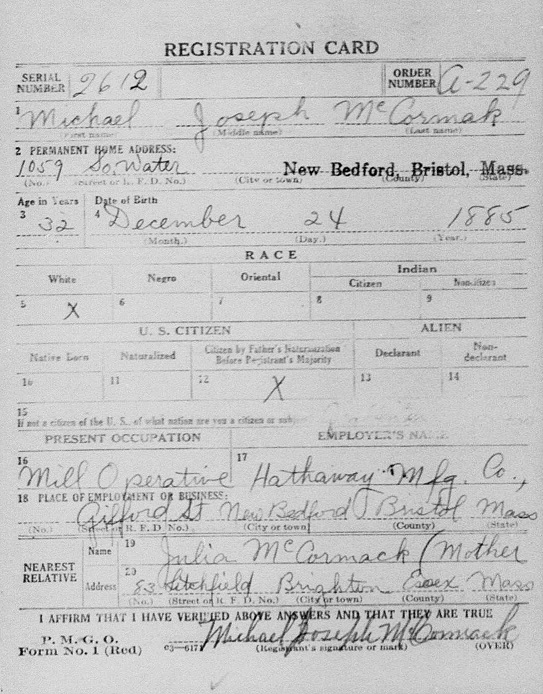 REGISTRATION CARD
SERIAL NUMBER 2612 ORDER NUMBER A-229
1 Michael Joseph McCormak
(First name) (Middle name) (Last name)
2 PERMANENT HOME ADDRESS:
1059 So. Water New Bedford, Bristol, Mass.
(No.) (Street or R. F. D. No.) (City or town) (County) (State)
Age in Years Date of Birth
3 32 4 December 24 1885
(Month.) (Day.) (Year.)
RACE
White Negro Oriental Indian
Citizen Noncitizen
5 X 6 7 8 9
U. S. CITIZEN ALIEN
Native Born Naturalized Citizen by Father's Naturalization Before Registrant's Majority Declarant Non-declarant
10 11 12 X 13 14
15
If not a citizen of the U. S., of what nation are you a citizen or subject
PRESENT OCCUPATION EMPLOYER'S NAME
16 Mill Operative 17 Hathaway Mfg. Co.,
18 PLACE OF EMPLOYMENT OR BUSINESS:
Gifford St New Bedford Bristol Mass
(No.) (Street or R. F. D. No.) (City or town) (County) (State)
NEAREST RELATIVE Name 19 Julia McCormack (Mother
Address 20 83 Litchfield Brighton Essex Mass
(No.) (Street or R. F. D. No.) (City or town) (County) (State)
I AFFIRM THAT I HAVE VERIFIED ABOVE ANSWERS AND THAT THEY ARE TRUE
P. M. G. O.
Form No. 1 (Red) 03-6171 Michael Joseph McCormack
(Registrant's signature or mark) (OVER)